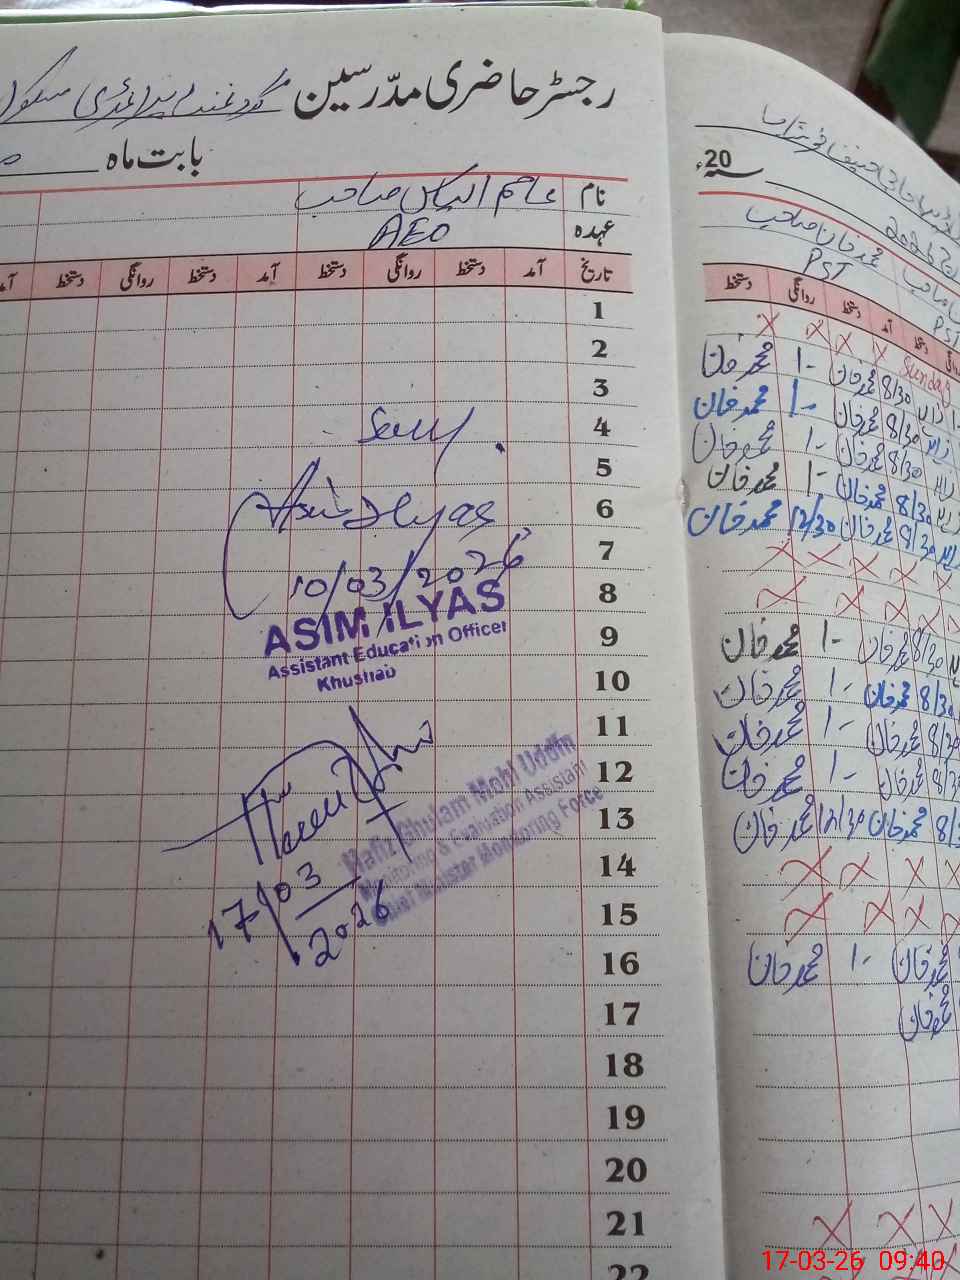 رجسٹر حاضری مدرسین گورنمنٹ پرائمری سکول
بابت ماہ
نام عاصم الیاس صاحب
عہدہ AEO
تاریخ آمد دستخط روانگی دستخط آمد دستخط روانگی دستخط آمد
1
2
3
4
5
6
7
8
9
10
11
12
13
14
15
16
17
18
19
20
21
22
Seen
Asim Ilyas
10/03/2026
ASIM ILYAS
Assistant Education Officer
Khushab
Hafiz Ghulam Mohi Uddin
Monitoring & Evaluation Assistant
Chief Minister Monitoring Force
17/03
2026
سنہ 20ء
2026
محمد خان صاحب
PST
PST
آمد دستخط روانگی دستخط
Sunday
8/30 محمد خان 1- محمد خان
8/30 محمد خان 1- محمد خان
8/30 محمد خان 1- محمد خان
8/30 محمد خان 1- محمد خان
8/30 محمد خان 12/30 محمد خان
8/30 محمد خان 1- محمد خان
8/30 محمد خان 1- محمد خان
8/30 محمد خان 1- محمد خان
8/30 محمد خان 1- محمد خان
8/3 محمد خان 12/30 محمد خان
محمد خان 1- محمد خان
محمد خان
17-03-26 09:40